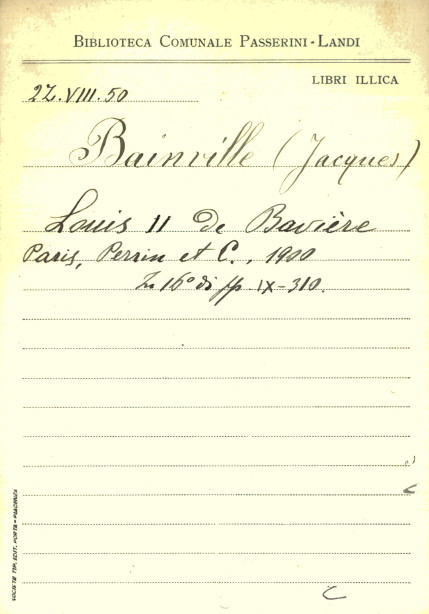 BIBLIOTECA COMUNALE PASSERINI-LANDI
LIBRI ILLICA
2Z.VIII.50
Bainville (Jacques)
Louis II de Bavière
Paris, Perrin et C., 1900
In 16° di pp IX-310.